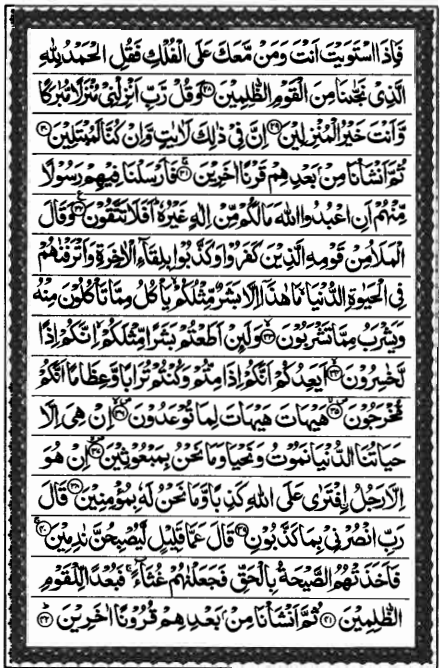 فَاِذَا اسْتَوَيْتَ اَنْتَ وَمَنْ مَّعَكَ عَلَى الْفُلْكِ فَقُلِ الْحَمْدُ لِلّٰهِ
الَّذِىْ نَجّٰىنَا مِنَ الْقَوْمِ الظّٰلِمِيْنَ ﴿۲۸﴾ وَقُلْ رَّبِّ اَنْزِلْنِىْ مُنْزَلًا مُّبٰرَكًا
وَّاَنْتَ خَيْرُ الْمُنْزِلِيْنَ ﴿۲۹﴾ اِنَّ فِىْ ذٰلِكَ لَاٰيٰتٍ وَّاِنْ كُنَّا لَمُبْتَلِيْنَ ﴿۳۰﴾
ثُمَّ اَنْشَاْنَا مِنْۢ بَعْدِهِمْ قَرْنًا اٰخَرِيْنَ ﴿۳۱﴾ فَاَرْسَلْنَا فِيْهِمْ رَسُوْلًا
مِّنْهُمْ اَنِ اعْبُدُوا اللّٰهَ مَا لَكُمْ مِّنْ اِلٰهٍ غَيْرُهٗ اَفَلَا تَتَّقُوْنَ ﴿۳۲﴾ وَقَالَ
الْمَلَاُ مِنْ قَوْمِهِ الَّذِيْنَ كَفَرُوْا وَكَذَّبُوْا بِلِقَآءِ الْاٰخِرَةِ وَاَتْرَفْنٰهُمْ
فِى الْحَيٰوةِ الدُّنْيَا مَا هٰذَآ اِلَّا بَشَرٌ مِّثْلُكُمْ يَاْكُلُ مِمَّا تَاْكُلُوْنَ مِنْهُ
وَيَشْرَبُ مِمَّا تَشْرَبُوْنَ ﴿۳۳﴾ وَلَئِنْ اَطَعْتُمْ بَشَرًا مِّثْلَكُمْ اِنَّكُمْ اِذًا
لَّخٰسِرُوْنَ ﴿۳۴﴾ اَيَعِدُكُمْ اَنَّكُمْ اِذَا مِتُّمْ وَكُنْتُمْ تُرَابًا وَّعِظَامًا اَنَّكُمْ
مُّخْرَجُوْنَ ﴿۳۵﴾ هَيْهَاتَ هَيْهَاتَ لِمَا تُوْعَدُوْنَ ﴿۳۶﴾ اِنْ هِىَ اِلَّا
حَيَاتُنَا الدُّنْيَا نَمُوْتُ وَنَحْيَا وَمَا نَحْنُ بِمَبْعُوْثِيْنَ ﴿۳۷﴾ اِنْ هُوَ
اِلَّا رَجُلُ ۨافْتَرٰى عَلَى اللّٰهِ كَذِبًا وَّمَا نَحْنُ لَهٗ بِمُؤْمِنِيْنَ ﴿۳۸﴾ قَالَ
رَبِّ انْصُرْنِىْ بِمَا كَذَّبُوْنِ ﴿۳۹﴾ قَالَ عَمَّا قَلِيْلٍ لَّيُصْبِحُنَّ نٰدِمِيْنَ ﴿۴۰﴾
فَاَخَذَتْهُمُ الصَّيْحَةُ بِالْحَقِّ فَجَعَلْنٰهُمْ غُثَآءً فَبُعْدًا لِّلْقَوْمِ
الظّٰلِمِيْنَ ﴿۴۱﴾ ثُمَّ اَنْشَاْنَا مِنْۢ بَعْدِهِمْ قُرُوْنًا اٰخَرِيْنَ ﴿۴۲﴾